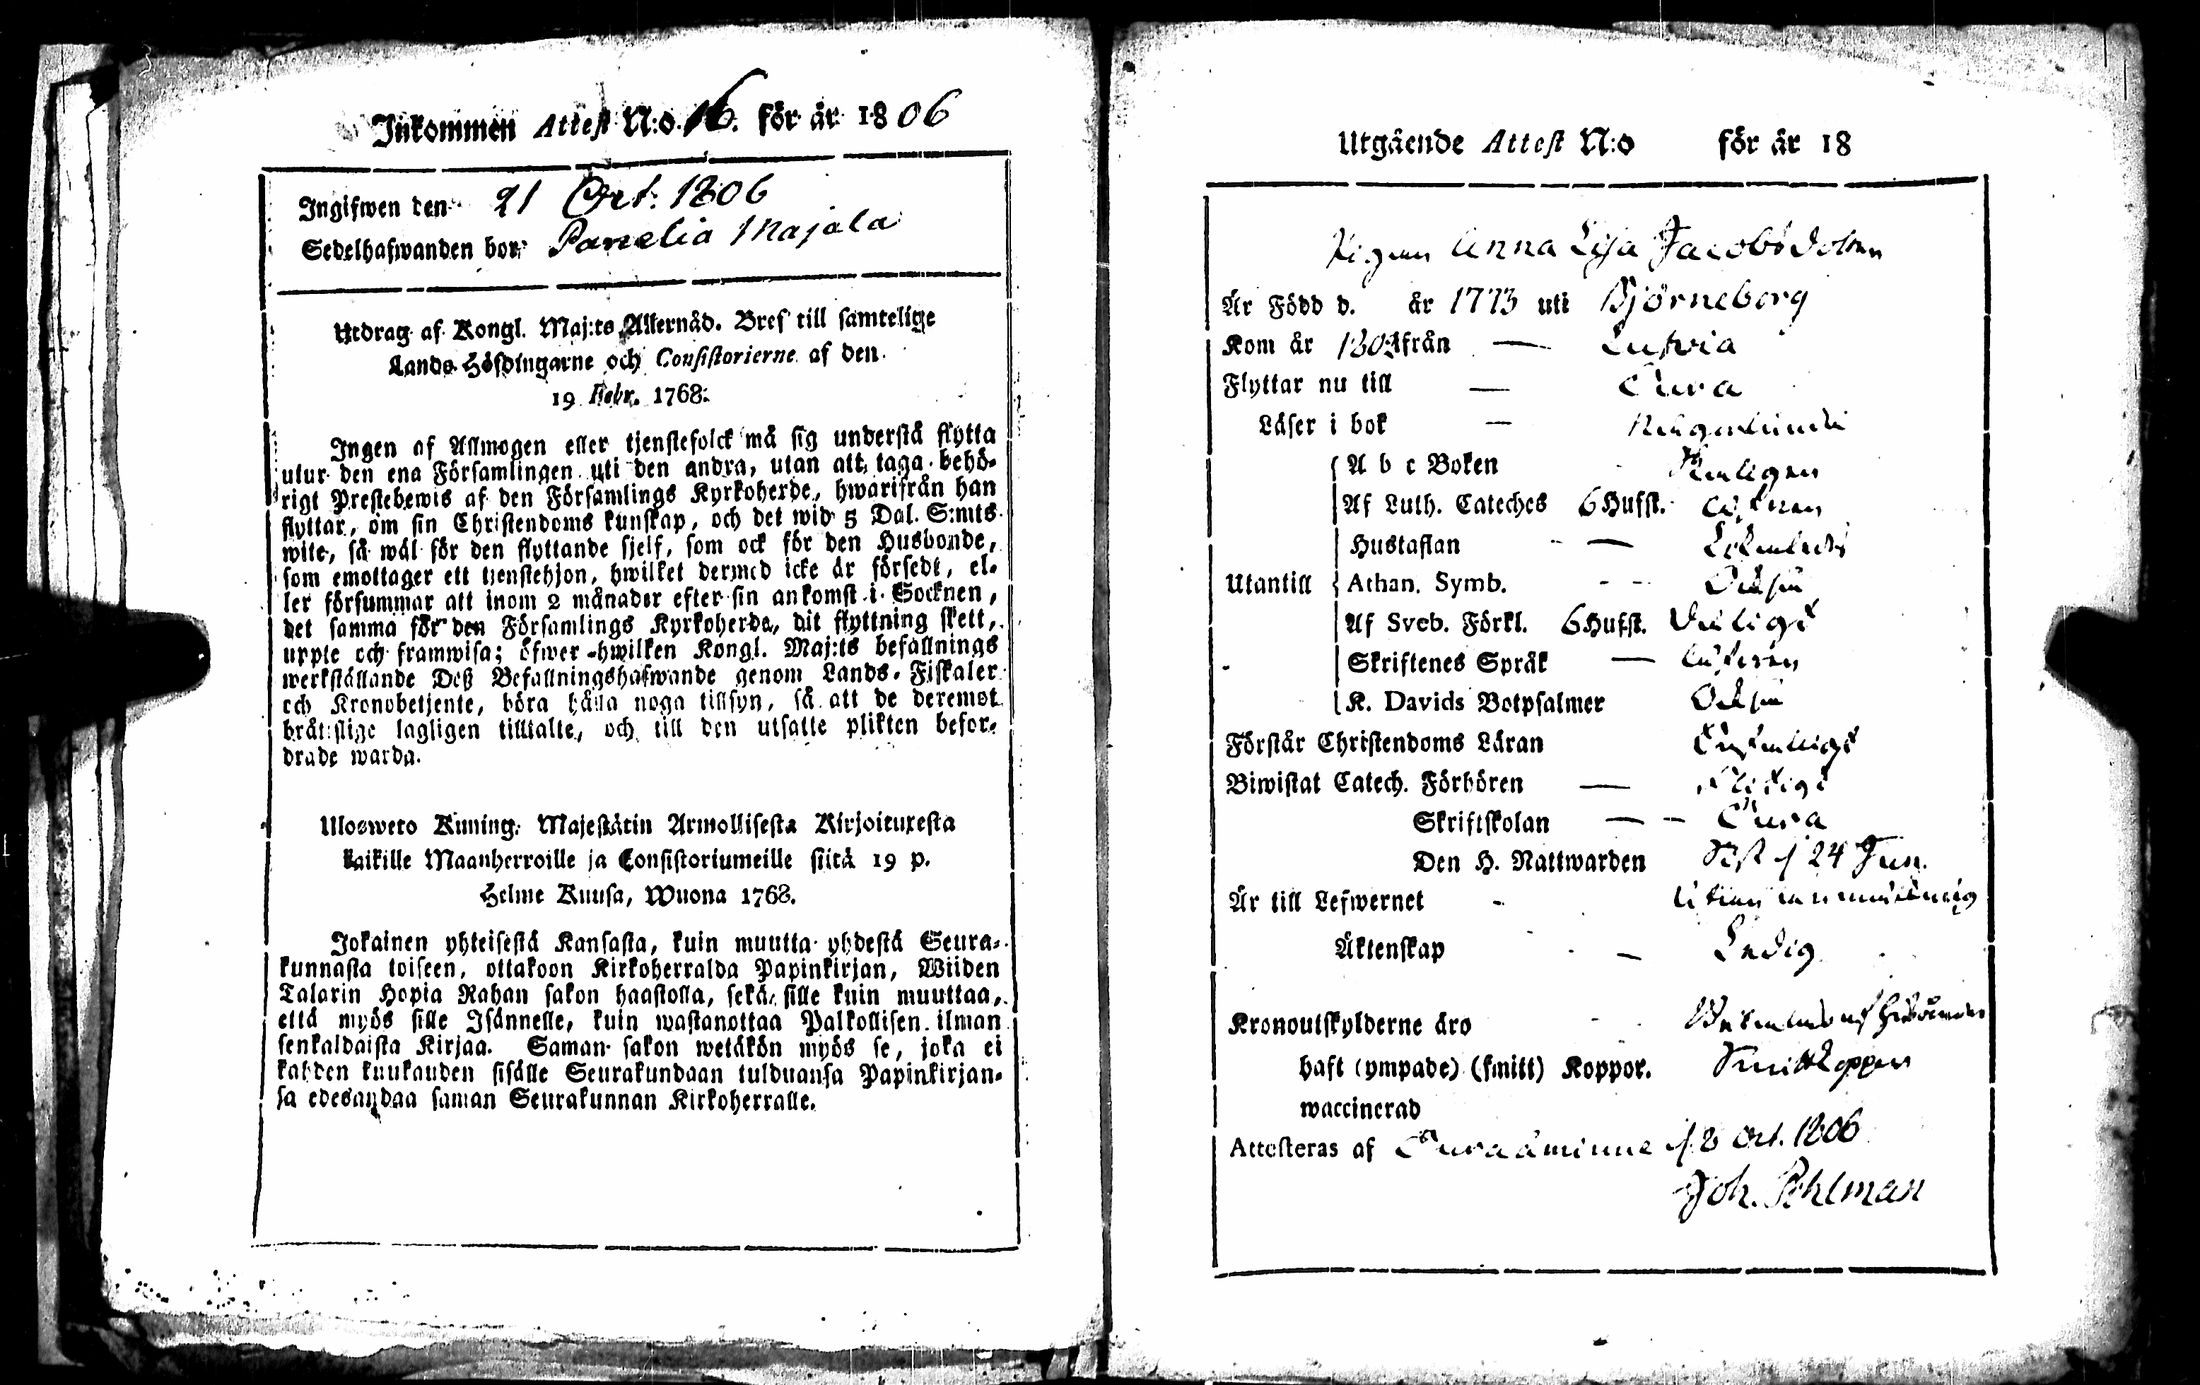 Inkommen Attest N:o 16. för år 1806
Ingifwen den 21 Oct: 1806
Sedelhafwanden bor Panelia Majala
Utdrag af Kongl. Maj:ts Allernåd. Bref till samtelige
Lands-Höfdingarne och Consistorierne af den
19 Febr. 1768.
Ingen af Allmogen eller tjenstefolck må sig understå flytta
utur den ena Församlingen uti den andra, utan att taga behö-
rigt Prestebewis af den Församlings Kyrkoherde, hwarifrån han
flyttar, om sin Christendoms kunskap, och det wid 5 Dal. S:mts
wite, så wäl för den flyttande sjelf, som ock för den Husbonde,
som emottager ett tjenstehjon, hwilket dermed icke är försedt, el-
ler försummar att inom 2 månader efter sin ankomst i Socknen,
det samma för den Församlings Kyrkoherde, dit flyttning skett,
uppte och framwisa; öfwer hwilken Kongl. Maj:ts befallnings
werkställande Deß Befallningshafwande genom Lands-Fiskaler
och Kronobetjente, böra hålla noga tillsyn, så att de deremot
brätslige lagligen tilltalte, och till den utsatte plikten befor-
drade warda.
Ulosweto Kuning. Majestätin Armollisesta Kirjoituxesta
kaikille Maanherroille ja Consistoriumeille siitä 19 p.
Helme Kuusa, Wuona 1768.
Jokainen yhteisestä Kansasta, kuin muutta yhdestä Seura-
kunnasta toiseen, ottakoon Kirkoherralda Papinkirjan, Wiiden
Talarin Hopia Rahan sakon haastolla, sekä sille kuin muuttaa,
että myös sille Isännelle, kuin wastanottaa Palkollisen ilman
senkaldaista Kirjaa. Saman sakon wetäkön myös se, joka ei
kahden kuukauden sisälle Seurakundaan tulduansa Papinkirjan-
sa edesandaa saman Seurakunnan Kirkoherralle.
Utgående Attest N:o för år 18
Pigan Anna Lisa Jacobsdotter
Är Född d. år 1773 uti Björneborg
Kom år ifrån — Lufvia
Flyttar nu till — Eura
Läser i bok —
A b c Boken
Af Luth. Cateches 6 Hufst.
Hustaflan —
Utantill Athan. Symb. - -
Af Sveb. Förkl. 6 Hufst.
Skriftenes Språk —
K. Davids Botpsalmer
Förstår Christendoms Läran
Biwistat Catech. Förhören —
Skriftskolan — - Eura
Den H. Nattwarden sist d 24 Jun.
Är till Lefwernet -
Äktenskap - Ledig
Kronoutskylderne äro -
haft (ympade) (smitt) Koppor. Smittkoppor
waccinerad
Attesteras af Euraåminne d. 8 Oct. 1806
Joh. Pohlman